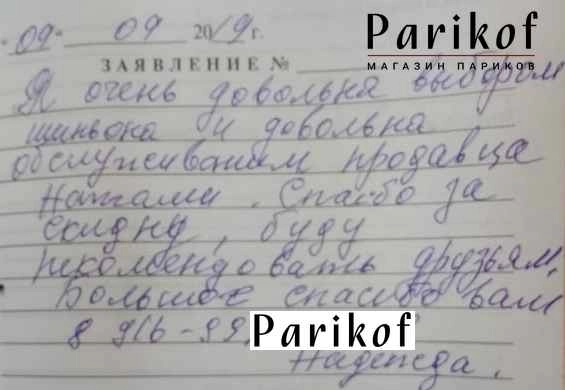 "09" 09 2019 г.
Parikof
МАГАЗИН ПАРИКОВ
ЗАЯВЛЕНИЕ №
Я очень довольна выбором
шиньона и довольна
обслуживанием продавца
Натами. Спасибо за
скидку, буду
рекомендовать друзьям.
Большое спасибо вам
8 916-99
Parikof
Надежда.